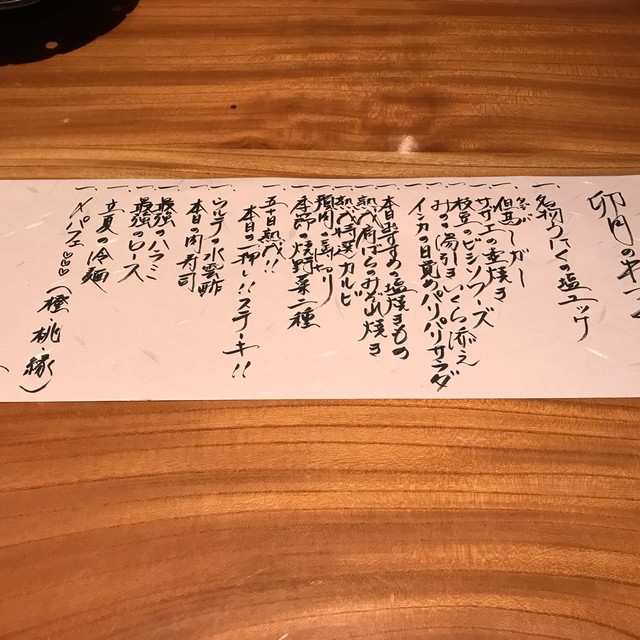 卯月の
一、名物うにくの塩ユッケ
一、但馬バーガー
一、サザエの壺焼き
一、枝豆のビシソワーズ
一、みのの湯引きいくら添え
一、インカの目覚めパリパリサラダ
一、本日おすすめの塩焼きもの
一、熟成肩ばらのみぞれ焼き
一、熟成特選カルビ
一、
一、季節の焼野菜二種
一、五十日熟成!!
本日の一押し!!ステーキ!!
一、ウルテの水雲酢
一、本日の肉寿司
一、最強のハラミ
一、最強のロース
一、立夏の冷麺
一、〆パフェ♡♡♡(橙・桃・緑)